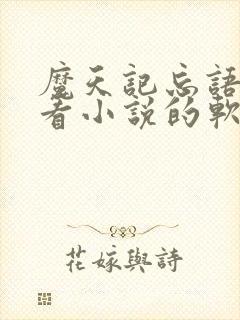 魔天記忘語
看小說的軟
花嫁與詩